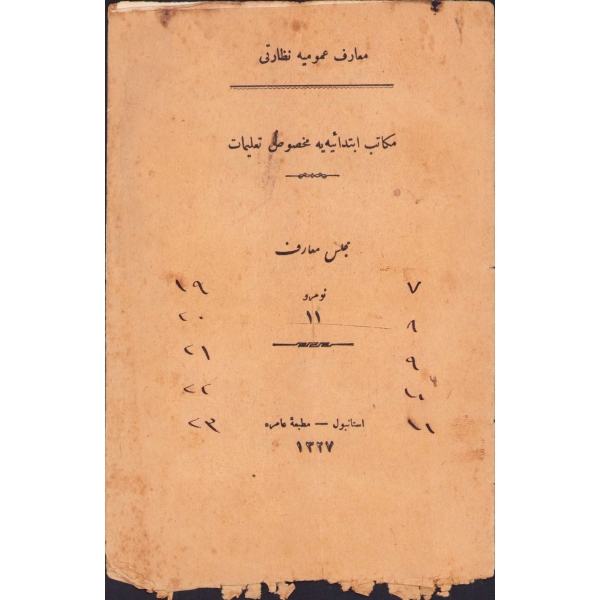 معارف عموميه نظارتى
مكاتب ابتدائيه‌يه مخصوص تعليمات
مجلس معارف
نومرو
١١
استانبول — مطبعهٔ عامره
١٣٢٧
٧
٨
٩
١٠
١١
١٩
٢٠
٢١
٢٢
٢٣